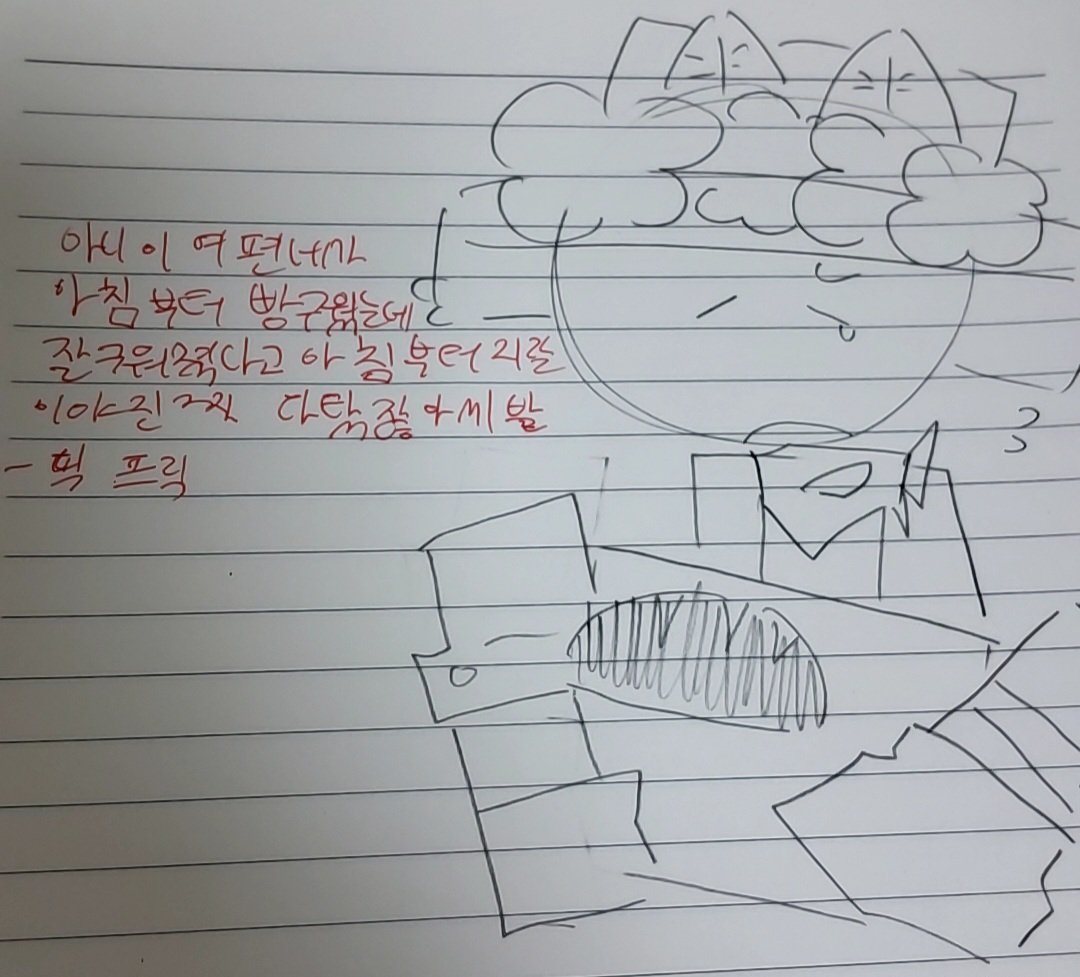 아니 이 여편네가
아침부터 방구뀠는데
잘 구워졌다고 아침부터 지랄
이야 진짜 다 탔잖아 씨발
- 픽 프릭